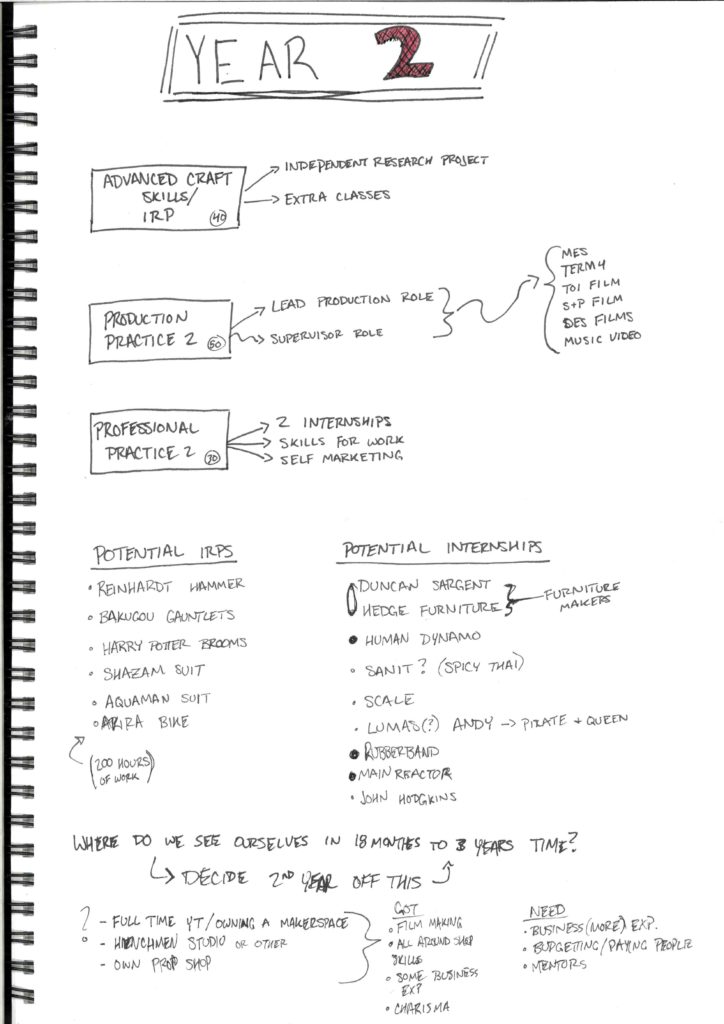 YEAR 2
ADVANCED CRAFT
SKILLS/
IRP
40
INDEPENDENT RESEARCH PROJECT
EXTRA CLASSES
PRODUCTION
PRACTICE 2
50
LEAD PRODUCTION ROLE
SUPERVISOR ROLE
MES
TERM 4
TOI FILM
S+P FILM
DES FILMS
MUSIC VIDEO
PROFESSIONAL
PRACTICE 2
2 INTERNSHIPS
SKILLS FOR WORK
SELF MARKETING
POTENTIAL IRPS
• REINHARDT HAMMER
• BAKUGOU GAUNTLETS
• HARRY POTTER BROOMS
• SHAZAM SUIT
• AQUAMAN SUIT
• AKIRA BIKE
(200 HOURS
OF WORK)
POTENTIAL INTERNSHIPS
DUNCAN SARGENT
HEDGE FURNITURE
FURNITURE
MAKERS
• HUMAN DYNAMO
• SANIT? (SPICY THAI)
• SCALE
• LUMAS(?) ANDY → PIRATE + QUEEN
• RUBBERBAND
• MAIN REACTOR
• JOHN HODGKINS
WHERE DO WE SEE OURSELVES IN 18 MONTHS TO 3 YEARS TIME?
DECIDE 2ND YEAR OFF THIS
? - FULL TIME YT/OWNING A MAKERSPACE
- HENCHMEN STUDIO OR OTHER
- OWN PROP SHOP
GOT
• FILM MAKING
• ALL AROUND SHOP
SKILLS
• SOME BUSINESS
EXP
• CHARISMA
NEED
• BUSINESS (MORE) EXP.
• BUDGETTING/PAYING PEOPLE
• MENTORS